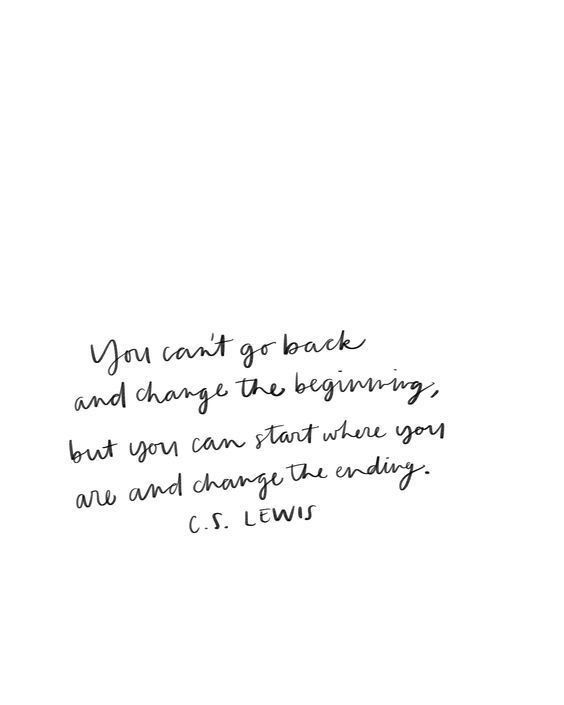 You can't go back
and change the beginning,
but you can start where you
are and change the ending.
C.S. LEWIS